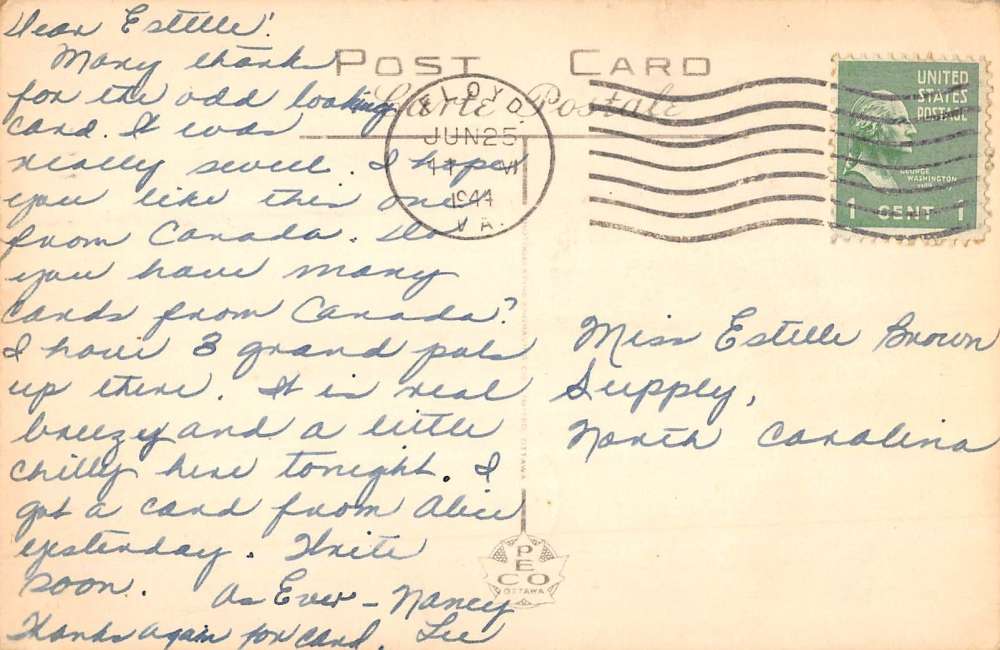 Dear Estelle!
Many thanks
for the odd looking
card. It was
really sweet. I hope
you like this one
from Canada. Do
you have many
cards from Canada?
I have 3 grand pals
up there. It is real
breezy and a little
chilly here tonight. I
got a card from Alice
yesterday. Write
soon.
As Ever - Nancy
Lee
Thanks again for card.
POST CARD
Carte Postale
FLOYD
JUN 25
M
1944
VA.
UNITED
STATES
POSTAGE
GEORGE
WASHINGTON
1 CENT 1
Miss Estelle Brown
Supply,
North Carolina
PECO
OTTAWA